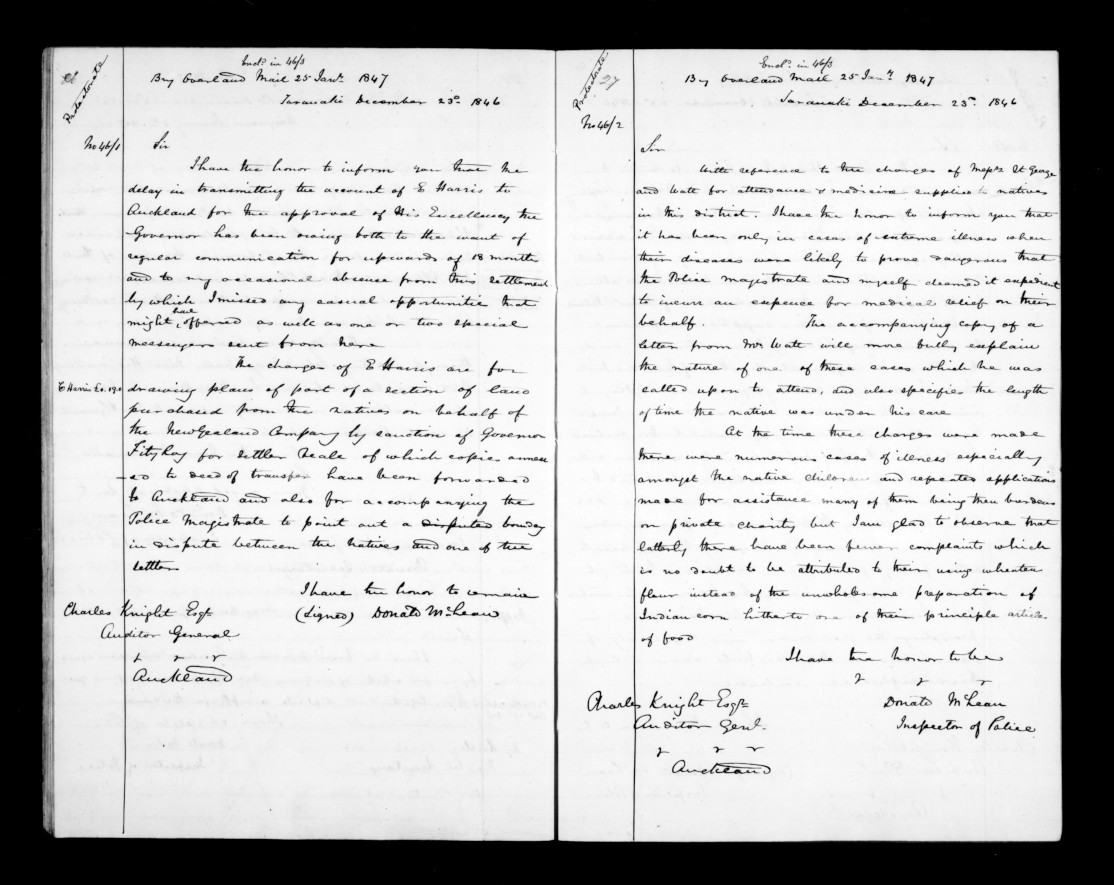 Encl. in 46/3
By Overland Mail 25 Jany. 1847
Taranaki December 23d. 1846
No 46/1
Sir
I have the honor to inform you that the
delay in transmitting the account of E Harris to
Auckland for the approval of His Excellency the
Governor has been owing both to the want of
regular communication for upwards of 18 months
and to my occasional absence from this settlement
by which I missed any casual opportunities that
might have offered as well as one or two special
messengers sent from here
The charges of E Harris are for
E Harris
drawing plans of part of a section of land
purchased from the natives on behalf of
the New Zealand Company by sanction of Governor
FitzRoy for settler Neale of which copies annex
-ed to deed of transfer have been forwarded
to Auckland and also for accompanying the
Police Magistrate to point out a disputed bounday
in dispute between the Natives and one of the
settlers
I have the honor to remain
(signed) Donald McLean
Charles Knight Esqr
Auditor General
Auckland
27
Encl. in 46/3
By Overland Mail 25 Jany. 1847
Taranaki December 23d. 1846
No 46/2
Sir
With reference to the charges of Messrs St George
and Watt for attendance & medicine supplied to natives
in this district. I have the honor to inform you that
it has been only in cases of extreme illness when
their diseases were likely to prove dangerous that
the Police magistrate and myself deemed it expedient
to incurr an expence for medical relief on their
behalf. The accompanying copy of a
letter from Mr Watt will more fully explain
the nature of one of these cases which he was
called upon to attend, and also specifies the length
of time the native was under his care
At the time these charges were made
there were numerous cases of illness especially
amongst the native children and repeated applications
made for assistance many of them being then burdens
on private charity but I am glad to observe that
latterly there have been fewer complaints which
is no doubt to be attributed to their using wheaten
flour instead of the unwholesome preparation of
Indian corn hitherto one of their principle articles
of food
I have the honor to be
Donald McLean
Inspector of Police
Charles Knight Esqr
Auditor Genl.
Auckland